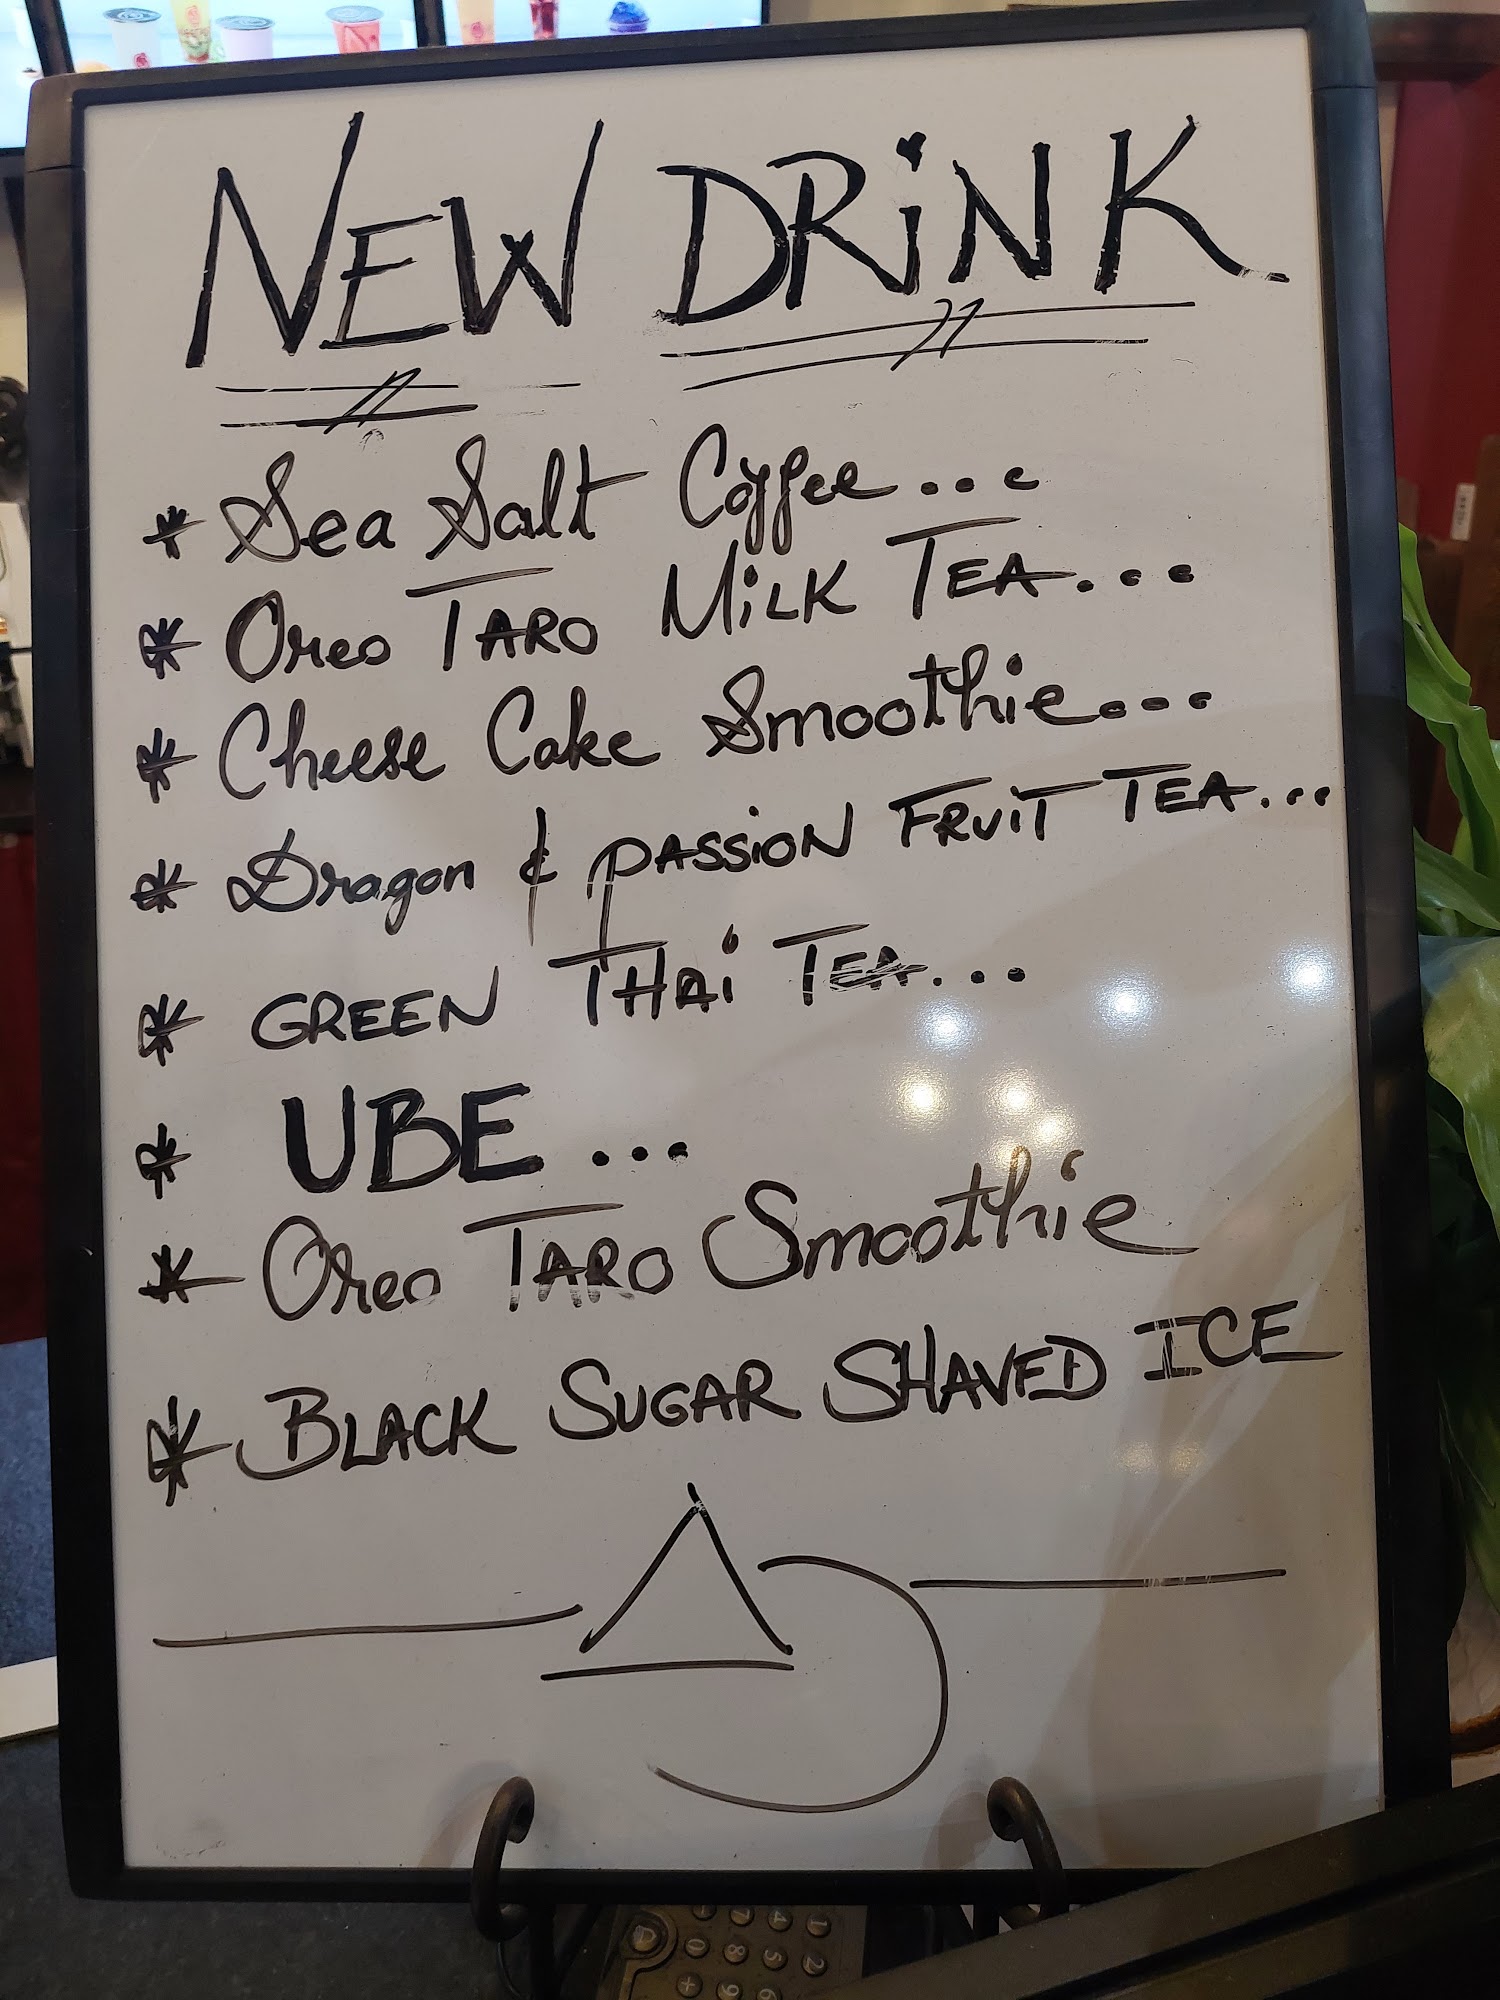 NEW DRiNK
* Sea Salt Coffee...
* Oreo TARO MiLK TEA...
* Cheese Cake Smoothie...
* Dragon & PASSiON FRUiT TEA...
* GREEN THAi TEA...
* UBE...
* Oreo TARO Smoothie
* BLACK SUGAR SHAVED ICE